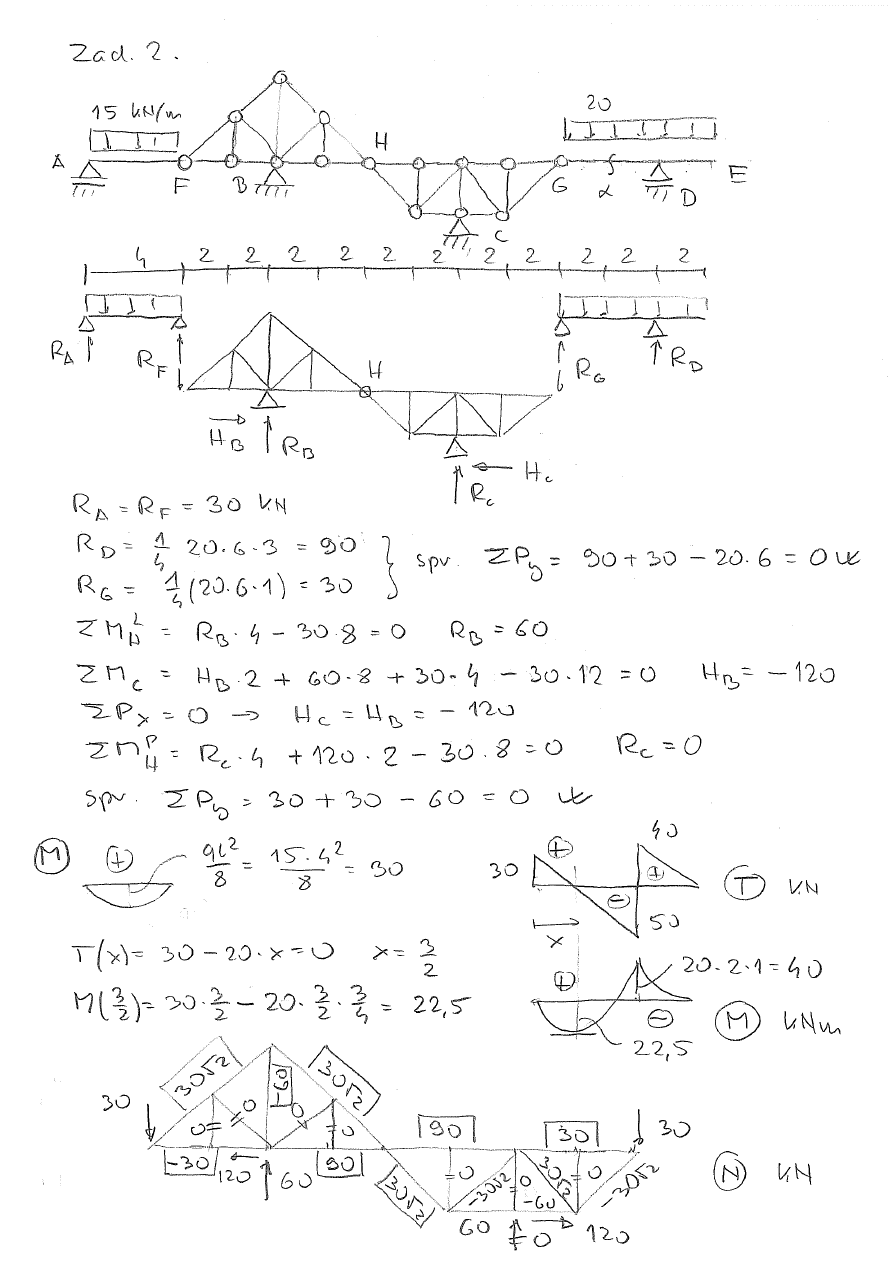 Zad. 2.
15 kN/m
20
A F B H C G α D E
4 2 2 2 2 2 2 2 2 2 2 2
R_A R_F H_B R_B H R_C H_c R_G R_D
R_A = R_F = 30 kN
R_D = 1/4 20·6·3 = 90
R_G = 1/4 (20·6·1) = 30
} spr. ΣP_y = 90 + 30 - 20·6 = 0
ΣM_H^L = R_B·4 - 30·8 = 0 R_B = 60
ΣM_C = H_B·2 + 60·8 + 30·4 - 30·12 = 0 H_B = -120
ΣP_x = 0 → H_C = H_B = -120
ΣM_H^P = R_C·4 + 120·2 - 30·8 = 0 R_C = 0
spr. ΣP_y = 30 + 30 - 60 = 0
M + qL²/8 = 15·4²/8 = 30
30 + - + 40 50 T kN
x
T(x) = 30 - 20·x = 0 x = 3/2
M(3/2) = 30·3/2 - 20·3/2·3/4 = 22,5
+ - 20·2·1 = 40 22,5 M kNm
30 30√2 -60 30√2 0 0 0 0
-30 120 60 90 30√2
90 30 30
0 -30√2 0 30√2 0 -30√2
-60
60 0 120
N kN